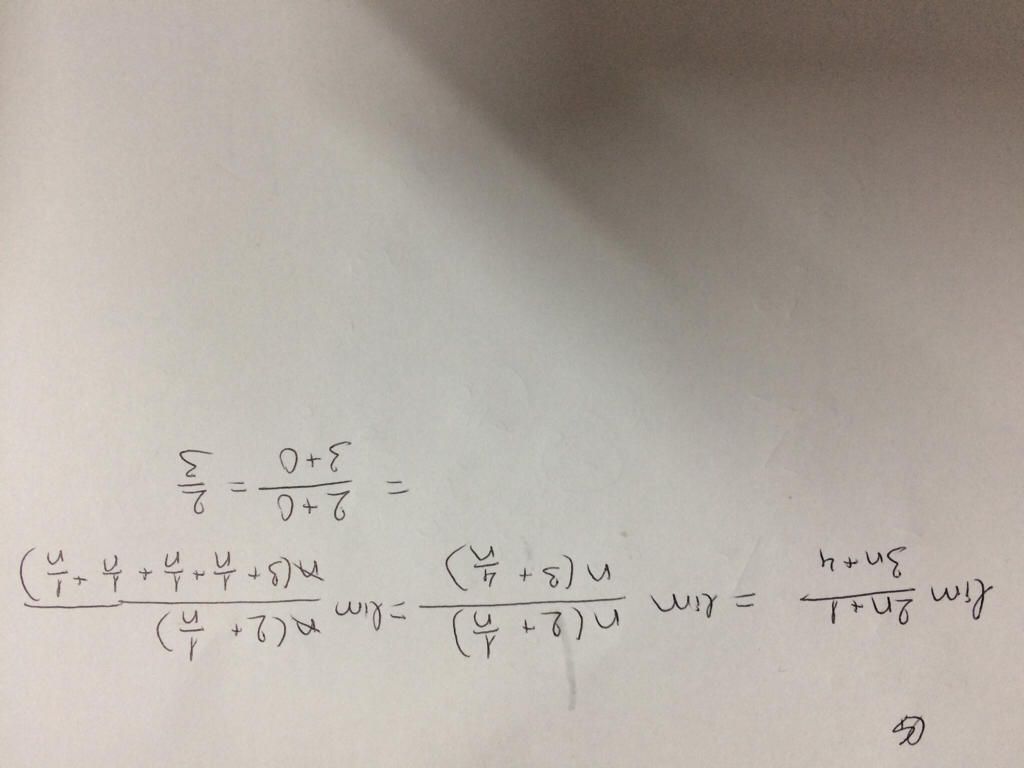 lim (2n+1)/(3n+4) = lim n(2+1/n)/n(3+4/n) = lim n(2+1/n)/n(3+1/n+1/n+1/n+1/n)
= (2+0)/(3+0) = 2/3